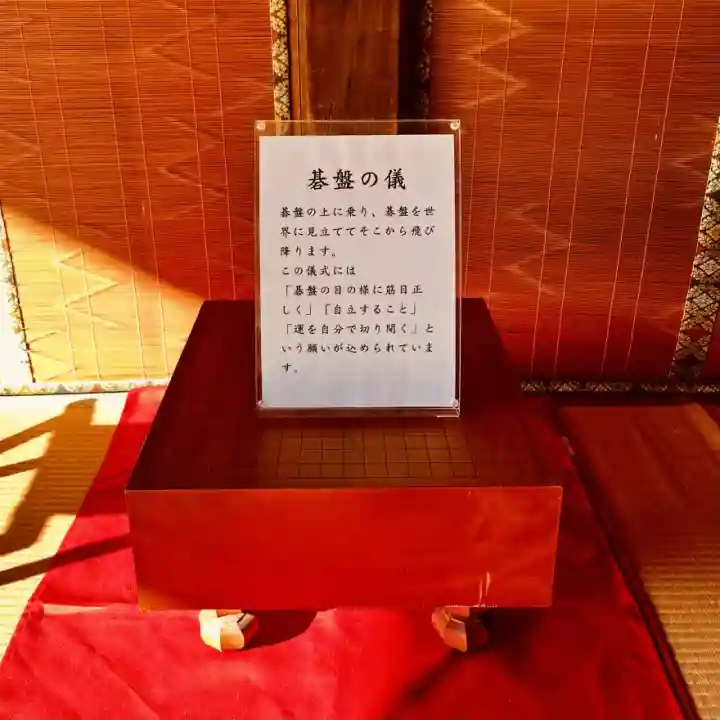 碁盤の儀
碁盤の上に乗り、碁盤を世
界に見立ててそこから飛び
降ります。
この儀式には
「碁盤の目の様に筋目正
しく」「自立すること」
「運を自分で切り開く」と
いう願いが込められていま
す。